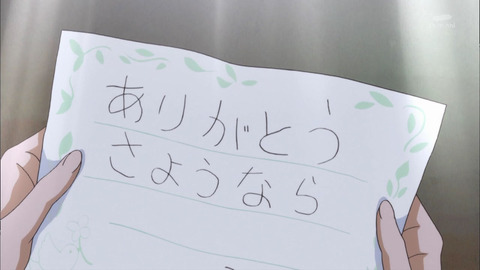 ありがとう
さようなら